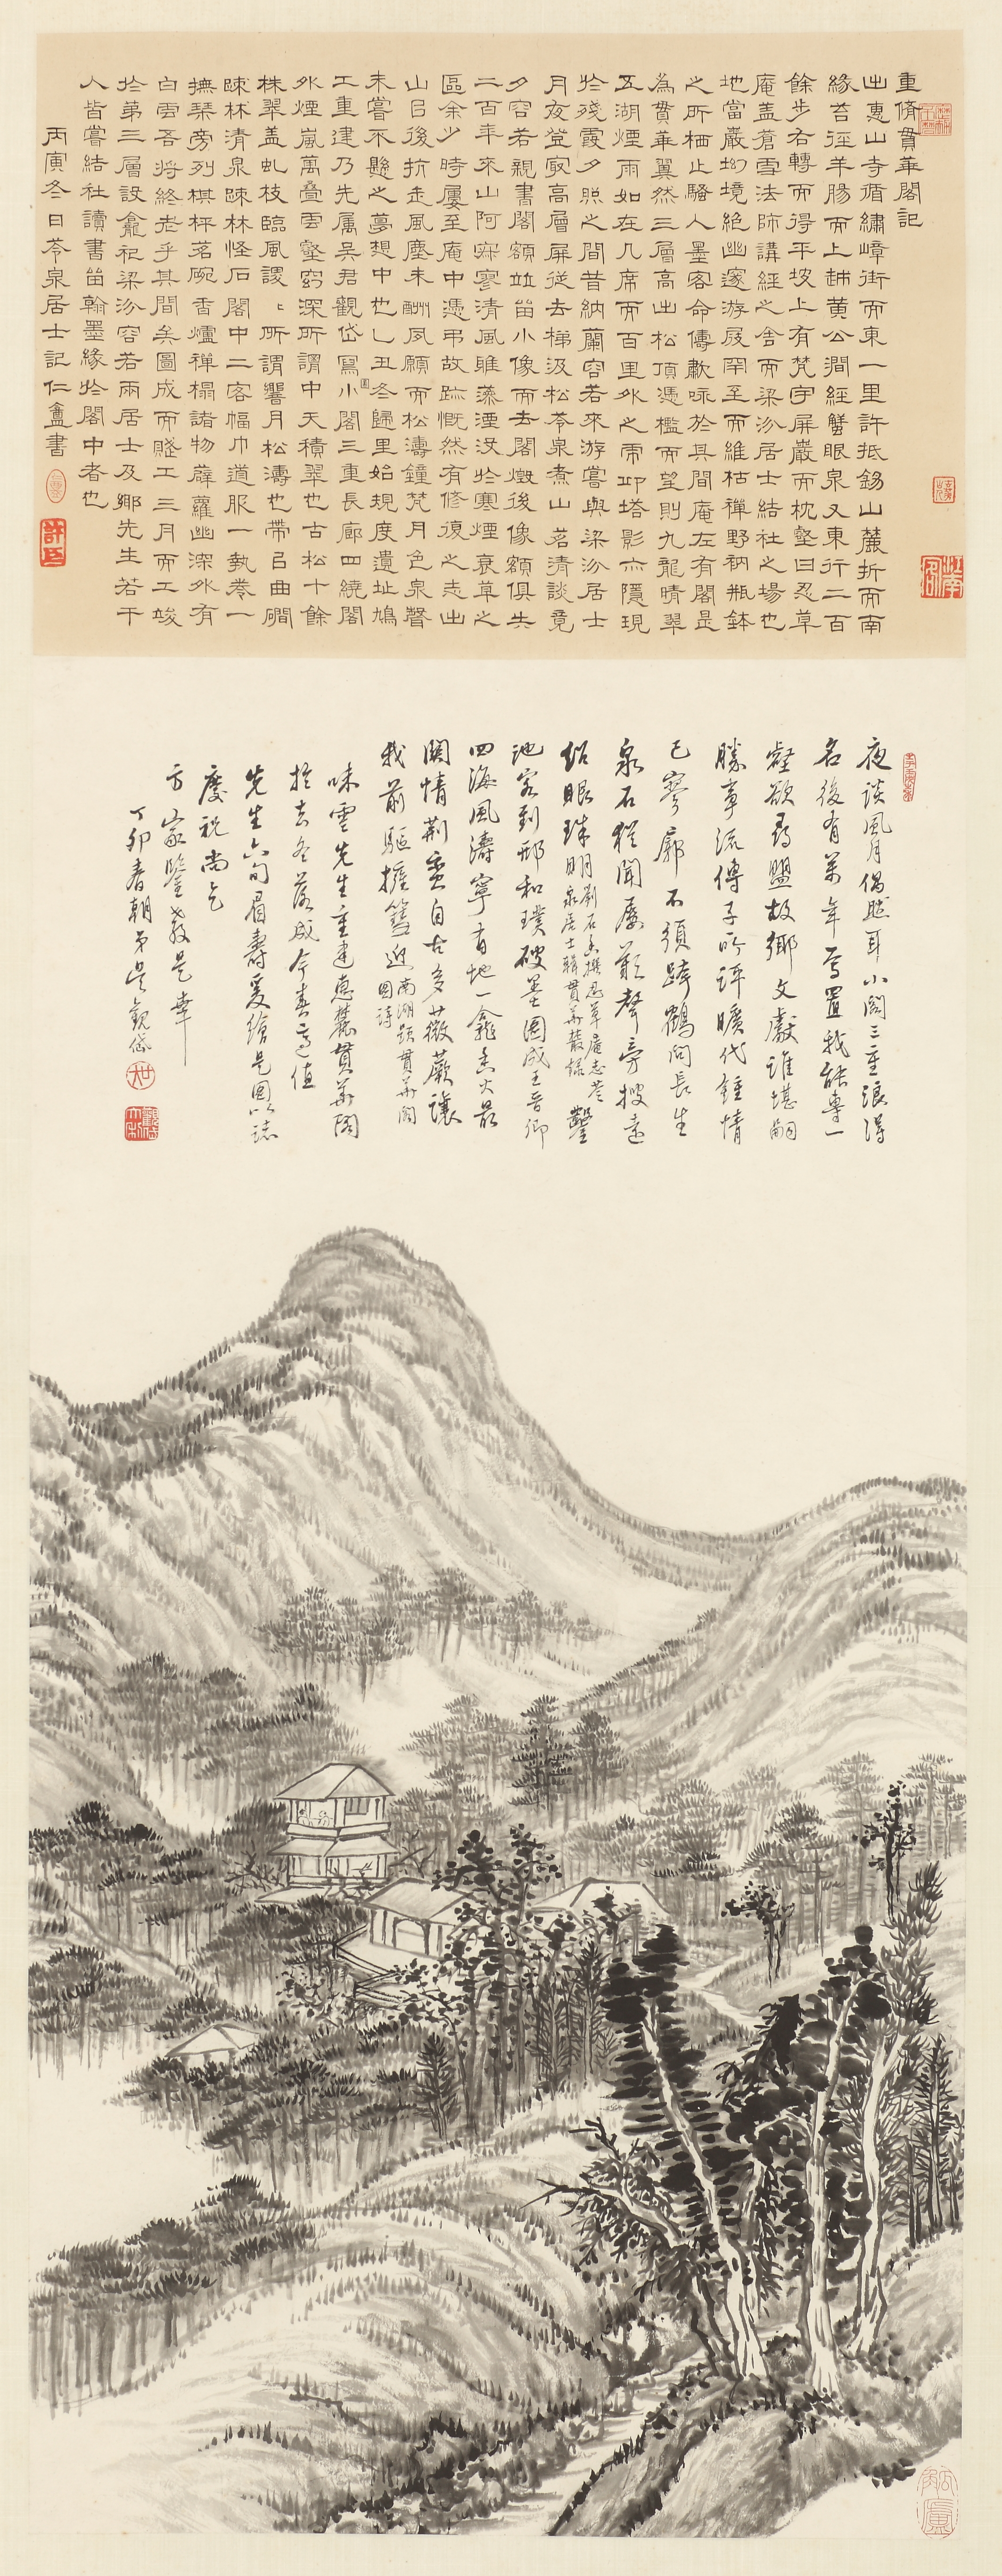 重脩貫華閣記
出惠山寺循繡嶂街而東一里許抵錫山麓折而南
緣苔徑羊腸而上越黃公澗經蟹眼泉又東行二百
餘步右轉而得平坡上有梵宇屏巖而枕壑曰忍草
庵蓋蒼雪法師講經之舍而梁汾居士結社之場也
地當巖坳境絕幽邃游屐罕至而維枯禪野衲瓶鉢
之所栖止騷人墨客命儔歗咏於其間庵左有閣是
為貫華翼然三層高出松頂憑檻而望則九龍晴翠
五湖煙雨如在几席而百里外之帟卭塔影亦隱現
於殘霞夕照之間昔納蘭容若來游嘗與梁汾居士
月夜登寂高層屏從去梯汲松苓泉煮山茗清談竟
夕容若親書閣額竝留小像而去閣燬後像額俱失
二百年來山阿寂寥清風雖藻湮沒於寒煙衰草之
區余少時屢至庵中憑弔故跡慨然有修復之志出
山㠯後抗走風塵未酬夙願而松濤鐘梵月色泉聲
未嘗不懸之夢想中也乙丑冬歸里始規度遺址鳩
工重建乃先屬吳君觀岱寫小閣三重長廊四繞閣
外煙嵐萬疊雲壑窈深所謂中天積翠也古松十餘
株翠蓋虬枝臨風謖謖所謂響月松濤也帶㠯曲磵
疎林清泉疎林怪石閣中二客幅巾道服一執卷一
撫琹旁列棋枰茗碗香爐禪榻諸物薜蘿幽深外有
白雲吾將終老乎其間矣圖成而賤工三月而工竣
於第三層設龕祀梁汾容若兩居士及鄉先生若干
人皆嘗結社讀書留翰墨緣於閣中者也
丙寅冬日苓泉居士記仁盦書
夜談風月偶然耳小閣三重浪得
名後有萬年寫置我能專一
壑欲尋盟故鄉文獻誰堪嗣
勝事流傳子所評曠代鍾情
已寥廓不須跨鶴問長生
泉石猶聞屬歎聲旁搜遠
紹眼珠明劉石香撰忍草庵志若泉居士輯貫華叢錄鑿
池客到邢和璞破墨圖成王晉卿
四海風濤寧有地一龕香火最
關情荊蠻自古多薇蕨讓
我前驅擁篲迎南湖題貫華閣圖詩
味雲先生重建惠麓貫華閣
於去冬落成今春適值
先生六旬眉壽爰繪是圖以誌
慶祝尚乞
方家鑒教是幸
丁卯春朝弟吳觀岱